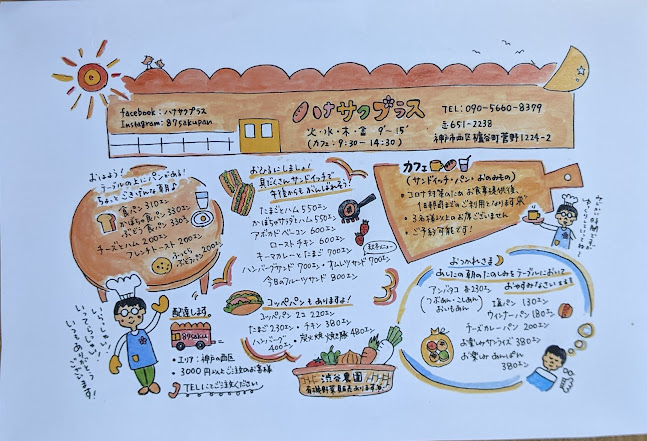 facebook:ハナサクプラス
Instagram:87sakupan
ハナサクプラス
火・水・木・金 9~15
(カフェ:9:30~14:30)
TEL:090-5660-8379
〒651-2238
神戸市西区櫨谷町菅野1224-2
おはよう!
テーブルの上にパンがある!
ちょっとごきげんな朝♪
食パン 310エン
かぼちゃ食パン 330エン
ぶどう食パン 380エン
チーズとハム 200エン
フレンチトースト 200エン
ぶどうパン 200エン
おひるにしましょ!
具だくさんサンドイッチで
午後からもがんばれそう!
たまごとハム 550エン
かぼちゃサラダとハム 550エン
アボカドベーコン 600エン
ローストチキン 600エン
キーマカレーとたまご 700エン
ハンバーグサンド 700エン・オムレツサンド 700エン
今日のフルーツサンド 800エン
コッペパンもありますよ!
コッペパン 2コ 220エン
たまご 230エン・チキン 380エン
ハンバーグ 400エン・炭火焼焼き豚 480エン
カフェ
(サンドイッチ・パン・おのみもの)
・コロナ対策のため お食事提供後、
1時間までのご利用となります
・3名様以上のお席ございません
・ご予約可能です!
おつかれさま
あしたの朝のたのしみをテーブルにおいて
おやすみなさいませ
アンパタコ 各230エン
(つぶあん・こしあん)
おいもあん
塩パン 130エン
ウィンナーパン 180エン
チーズカレーパン 200エン
お楽しみサンライズ 380エン
お楽しみあんぱん
380エン
いらっしゃい
いつも
ありがとう
ございます!
配達します。
87saku
・エリア:神戸市西区
・3000円以上ご注文のお客様
TELにてご注文ください
渋谷農園
有機野菜販売あります